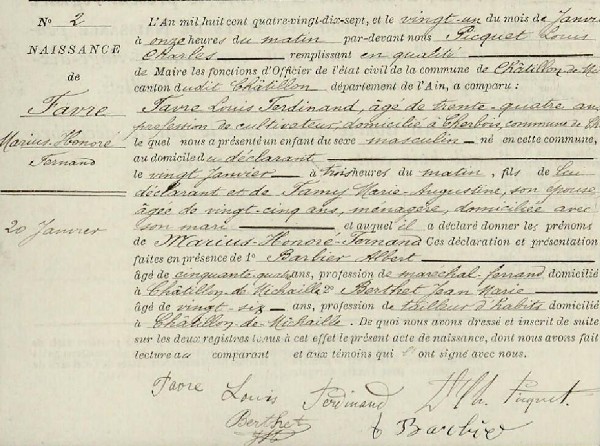 N° 2
NAISSANCE
de
Favre
Marius-Honoré
Fernand
20 Janvier
L'An mil huit cent quatre-vingt-dix-sept, et le vingt-un du mois de Janvi
à onze heures du matin par-devant nous Picquet Louis
Charles remplissant en qualité
de Maire les fonctions d'Officier de l'état civil de la commune de Châtillon de Mi
canton dudit Châtillon département de l'Ain, a comparu :
Favre Louis Ferdinand, âgé de trente-quatre ans
profession de cultivateur, domicilié à commune de
le quel nous a présenté un enfant du sexe masculin né en cette commune,
au domicile du déclarant
le vingt janvier à trois heures du matin, fils de lui
déclarant et de Famy Marie-Augustine, son épouse
âgée de vingt-cinq ans, ménagère, domiciliée avec
son mari et auquel il a déclaré donner les prénoms
de Marius-Honoré-Fernand Ces déclaration et présentation
faites en présence de 1° Barbier Albert
âgé de cinquante quatre ans, profession de marechal-ferrand domicilié
à Châtillon de Michaille 2° Berthet Jean Marie
âgé de vingt-six ans, profession de tailleur d'habits domicilié
à Châtillon-de-Michaille. De quoi nous avons dressé et inscrit de suite
sur les deux registres tenus à cet effet le présent acte de naissance, dont nous avons fait
lecture au comparant et aux témoins qui ont signé avec nous.
Favre Louis Ferdinand Picquet
Berthet Barbier